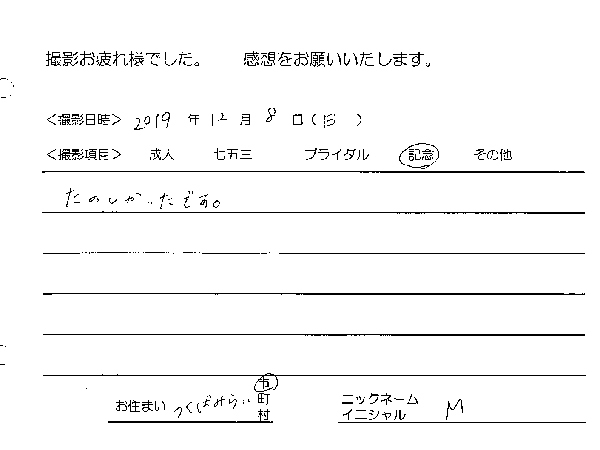 撮影お疲れ様でした。 感想をお願いいたします。
<撮影日時> 2019 年 12 月 8 日(日)
<撮影項目> 成人 七五三 ブライダル 記念 その他
たのしかったです。
お住まい つくばみらい 市町村 ニックネーム イニシャル M